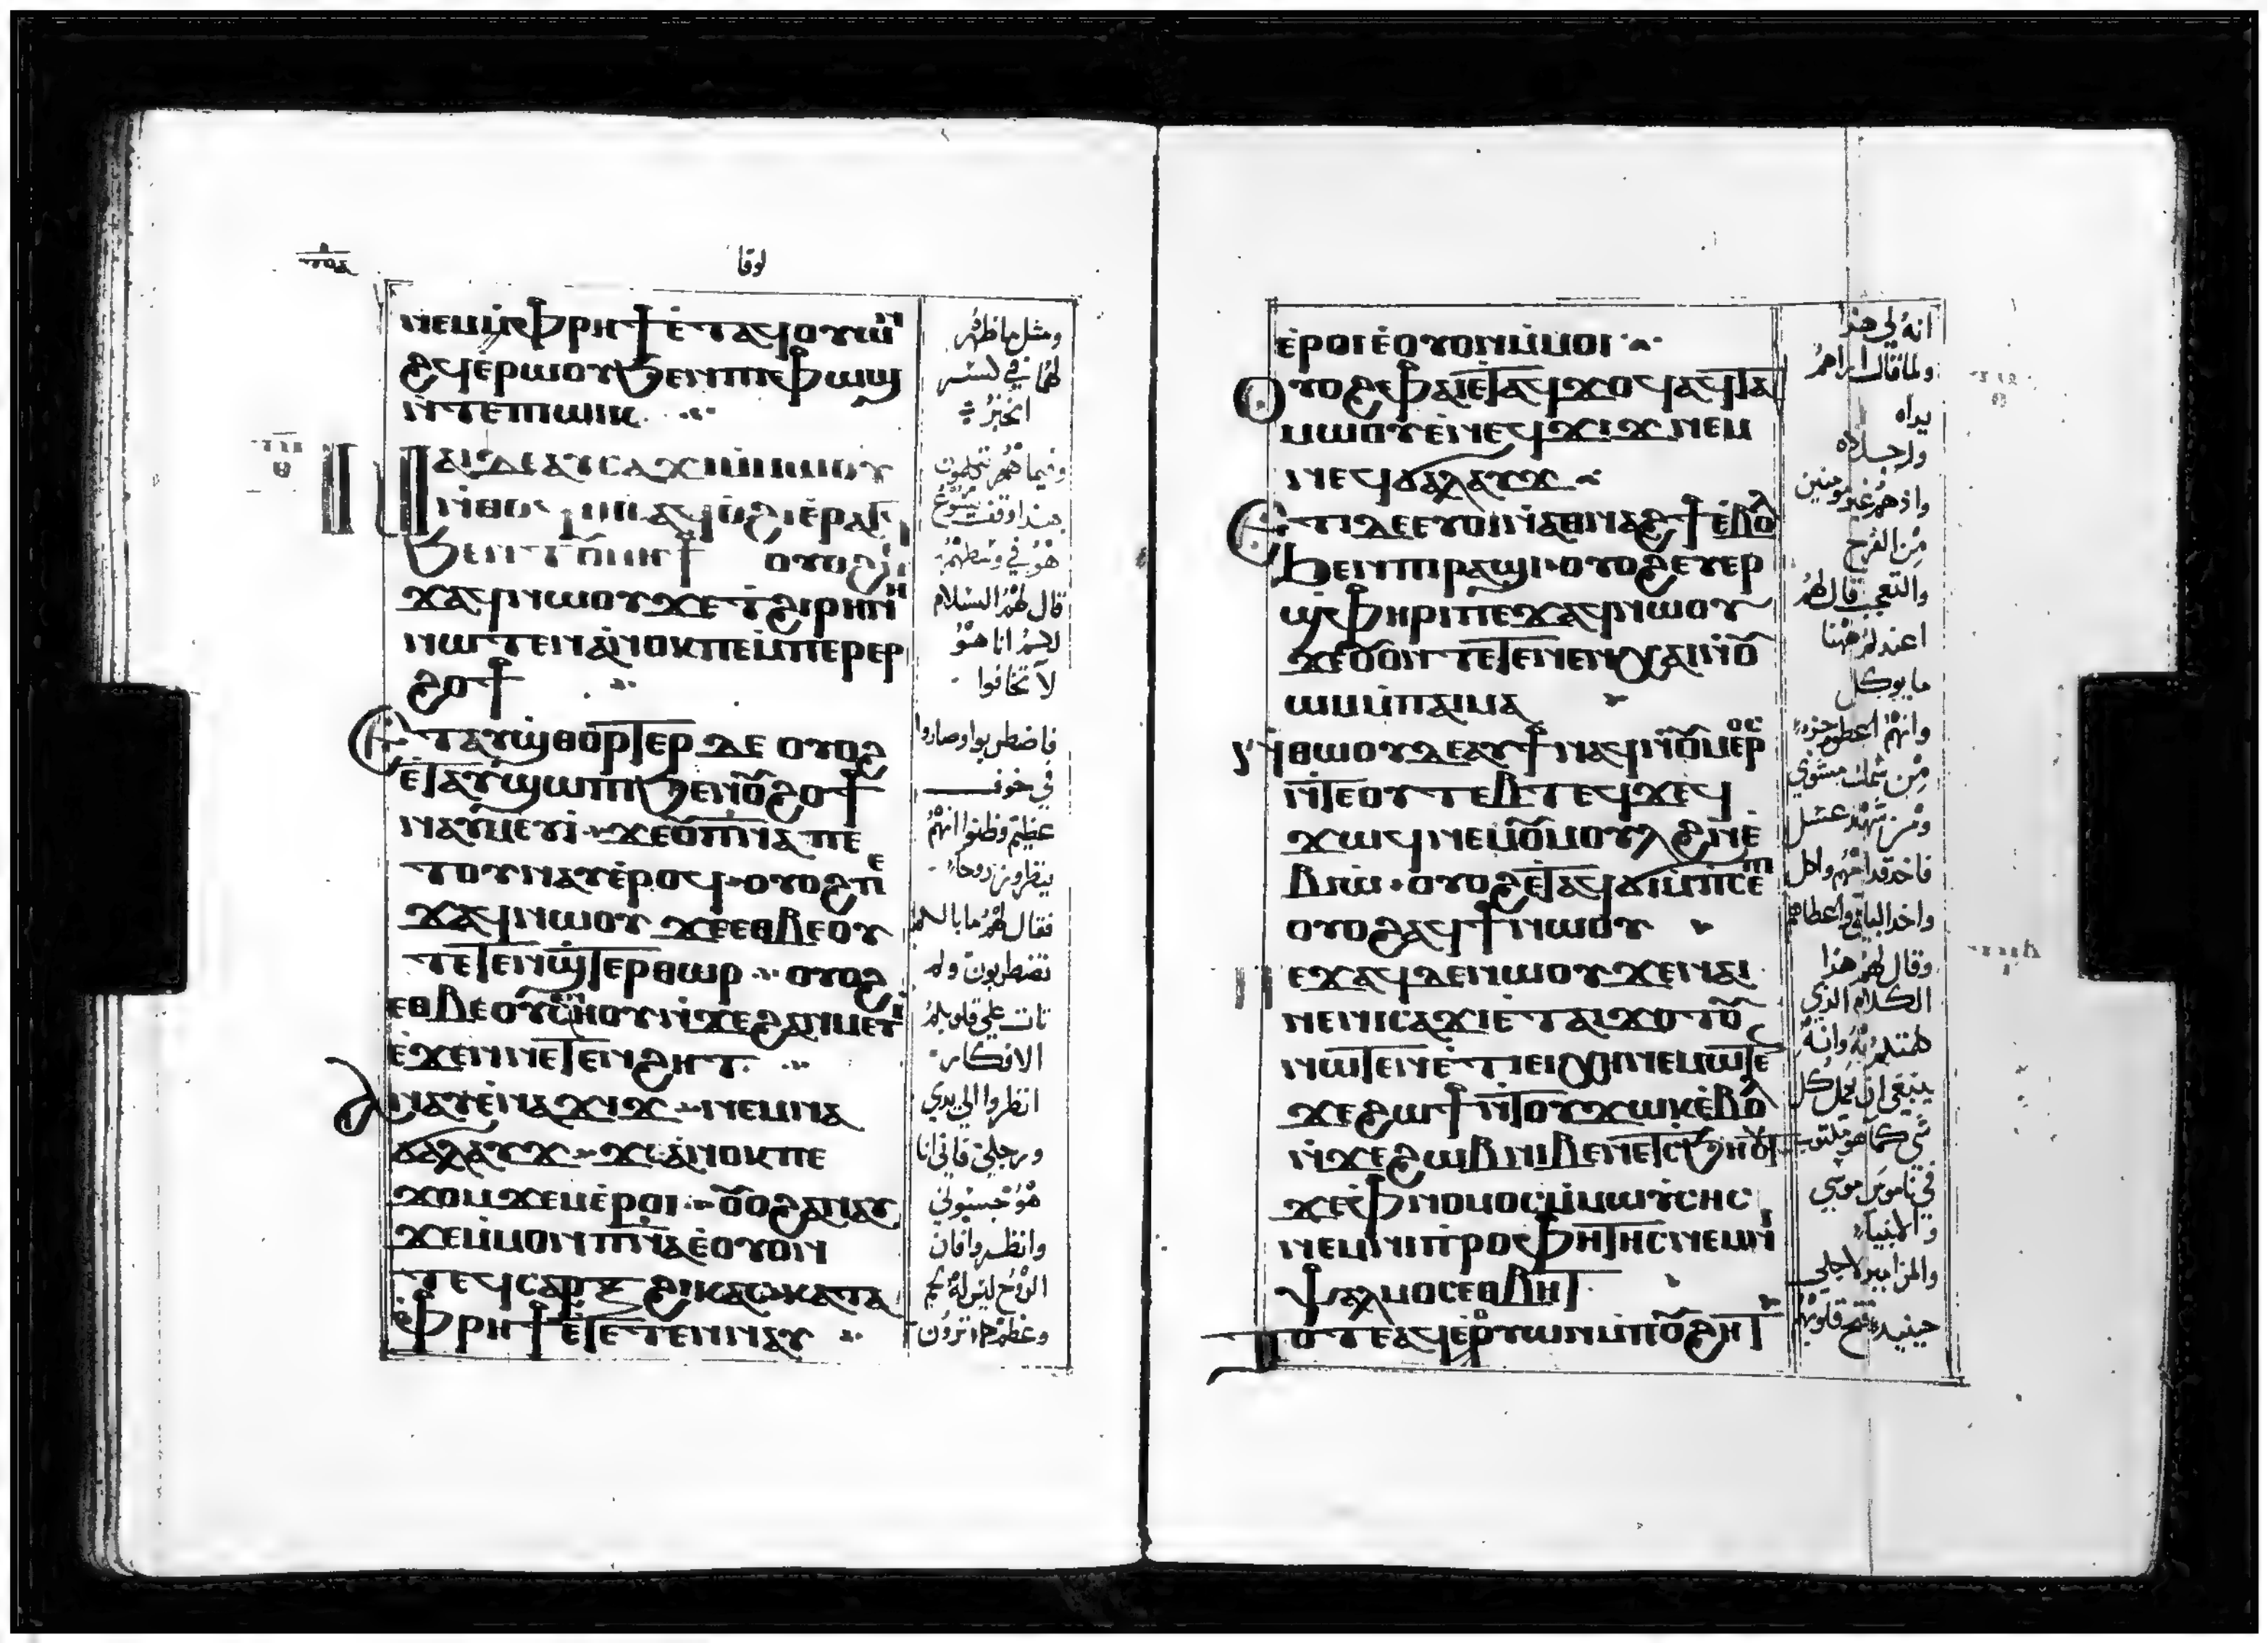 لوقا
ⲛⲉⲙⲙ̀ⲫⲣⲏϯⲉ̀ⲧⲁϥⲟⲩⲱⲛ
ϩϥⲉ̀ⲣⲱⲟⲩϧⲉⲛⲡⲉⲫⲱϣ
ⲛ̀ⲧⲉⲡⲱⲓⲕ
ⲛⲁⲓⲇⲉⲁⲩⲥⲁϫⲓⲙ̀ⲙⲱⲟⲩ
ⲛ̀ⲑⲟϥ ⲁϥⲟ̀ϩⲓⲉ̀ⲣⲁⲧϥ
ϧⲉⲛⲧⲟⲩⲙⲏϯ ⲟⲩⲟϩ
ϫⲁϥⲛⲱⲟⲩϫⲉⲧϩⲓⲣⲏⲛⲏ
ⲛⲱⲧⲉⲛⲁ̀ⲛⲟⲕⲡⲉⲙ̀ⲡⲉⲣⲉⲣ
ϩⲟϯ
ⲉⲧⲁⲩϣⲑⲟⲣⲧⲉⲣ ⲇⲉ ⲟⲩⲟϩ
ⲉ̀ⲧⲁⲩϣⲱⲡⲓϧⲉⲛⲟ̅ϩⲟϯ
ⲛⲁⲩⲙⲉⲩⲓ̀ ϫⲉⲟ̅ⲡ̅ⲛ̅ⲁ̅ ⲡⲉ
ⲧⲟⲩⲛⲁⲩⲉ̀ⲣⲟϥ ⲟⲩⲟϩⲡⲉ
ϫⲁϥⲛⲱⲟⲩ ϫⲉⲉⲑⲃⲉⲟⲩ
ⲧⲉⲧⲉⲛϣⲧⲉⲣⲑⲱⲣ ⲟⲩⲟϩ
ⲉⲑⲃⲉⲟⲩⲥⲉⲛⲏⲟⲩⲛ̀ϫⲉϩⲁⲛⲙⲉⲩⲓ
ⲉ̀ϫⲉⲛⲛⲉⲧⲉⲛϩⲏⲧ
ⲁⲛⲁⲩⲉ̀ⲛⲁϫⲓϫ ⲛⲉⲙⲛⲁ
ϭⲁⲗⲁⲩϫ ϫⲉⲁ̀ⲛⲟⲕⲡⲉ
ϫⲟⲙϫⲉⲙⲉ̀ⲣⲟⲓ ⲟ̅ⲟϩⲁⲛⲁⲩ
ϫⲉⲙ̀ⲙⲟⲛⲡ̅ⲛ̅ⲁ̅ⲉ̀ⲟⲩⲟⲛ
ⲧⲉϥⲥⲁⲣⲝ ϩⲓⲕⲁⲥⲕⲁⲧⲁ
ⲫⲣⲏϯⲉ̀ⲧⲉⲧⲉⲛⲛⲁⲩ
ومثل ما ظهر
لهما في كسر
الخبز
وفيما هم يتكلمون
بهذا وقف يسوع
هو في وسطهم
قال لهم السلام
لكم انا هو
لا تخافوا
فاضطربوا وصاروا
في خوف
عظيم وظنوا انهم
ينظرون روحا
فقال لهم ما بالكم
تضطربون ولم
تات على قلوبكم
الافكار
انظروا الى يدي
ورجلي فاني انا
هو جسوني
وانظروا فان
الروح ليس له لحم
وعظم كما ترون
ⲉ̀ⲣⲟⲓⲉ̀ⲟⲩⲟⲛⲙ̀ⲙⲟⲓ
ⲟⲩⲟϩⲫⲁⲓⲉ̀ⲧⲁϥϫⲟϥⲁϥⲧⲁ
ⲙⲱⲟⲩⲉ̀ⲛⲉϥϫⲓϫ ⲛⲉⲙ
ⲛⲉϥϭⲁⲗⲁⲩϫ
ⲉⲧⲓⲇⲉⲉⲩⲟⲓⲛ̀ⲁⲑⲛⲁϩϯⲉ̀ⲃⲟⲗ
ϧⲉⲛⲡⲓⲣⲁϣⲓ ⲟⲩⲟϩⲉⲩⲉⲣ
ϣ̀ⲫⲏⲣⲓⲡⲉϫⲁϥⲛⲱⲟⲩ
ϫⲉⲟ̅ⲟⲛ ⲧⲉⲧⲉⲛⲉⲛⲭⲁⲓⲛ̀ⲟ̅
ⲱⲙⲙ̀ⲡⲁⲓⲙⲁ
ⲛ̀ⲑⲱⲟⲩⲇⲉⲁⲩϯⲛⲁϥⲛ̀ⲟ̅ⲙⲉⲣⲟⲥ
ⲛ̀ⲧⲉⲟⲩⲧⲉⲃⲧⲉϥϫⲉϥ
ϫⲱϥⲛⲉⲙⲟ̅ⲙⲟⲩⲗϩⲛⲉ̀
ⲃⲓⲱ ⲟⲩⲟϩⲉ̀ⲧⲁϥϭⲓⲙ̀ⲡⲥⲉⲡ
ⲟⲩⲟϩⲁϥϯⲛⲱⲟⲩ
ⲡⲉϫⲁϥⲇⲉⲛⲱⲟⲩϫⲉⲛⲁⲓ
ⲛⲉⲛⲓⲥⲁϫⲓⲉ̀ⲧⲁⲓϫⲟⲧⲟⲩ
ⲛⲱⲧⲉⲛⲉ̀ⲧⲓⲉⲓⲭⲏⲛⲉⲙⲱⲧⲉ
ϫⲉϩⲱϯⲛ̀ⲧⲟⲩϫⲱⲕⲉ̀ⲃⲟⲗ
ⲛ̀ϫⲉϩⲱⲃⲛⲓⲃⲉⲛⲉⲧⲥϧⲏⲟⲩⲧ
ϫⲉⲫⲛⲟⲙⲟⲥⲙ̀ⲙⲱⲩ̀ⲥⲏⲥ
ⲛⲉⲙⲛⲓⲡⲣⲟⲫⲏⲧⲏⲥⲛⲉⲙⲛⲓ
ⲯⲁⲗⲙⲟⲥⲉⲑⲃⲏⲧ
ⲧⲟⲧⲉⲁϥⲉⲣⲟⲩⲱⲛⲙ̀ⲡⲟ̅ϩⲏⲧ
انه لي هذا
ولما قال اراهم
يداه
ورجلاه
واذ هم غير مومنين
من الفرح
والتعجب قال لهم
اعندكم ههنا
ما يوكل
وانهم اعطوه جزء
من سمك مشوي
ومن شهد عسل
فاخذ قدامهم واكل
واخذ الباقي واعطاهم
وقال لهم هذا
الكلام الذي
كلمتكم به وانه
ينبغي ان يكمل كل
شي كما هو مكتوب
في ناموس موسي
والانبياء
والمزامير لاجلي
حينيذ فتح قلوبهم